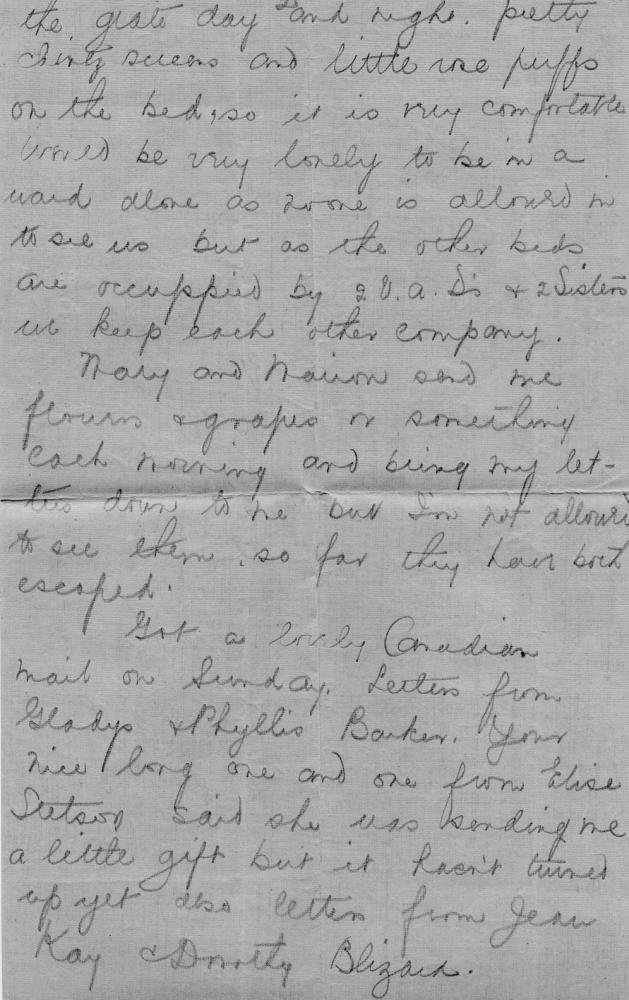 the grate day and night. pretty
chintz screens and little rose puffs
on the bed, so it is very comfortable
would be very lonely to be in a
ward alone as no one is allowed in
to see us but as the other beds
are occuppied by 2 V.A.D's + 2 Sisters
we keep each other company.
Mary and Marion send me
flowers & grapes or something
each morning and bring my let-
ters down to me but I'm not allowed
to see them, so far they have both
escaped.
Got a lovely Canadian
mail on Sunday. Letters from
Gladys & Phyllis Barker. Your
nice long one and one from Elise
Stetson said she was sending me
a little gift but it hasn't turned
up yet also letters from Jean
Kay & Dorothy Blizard.